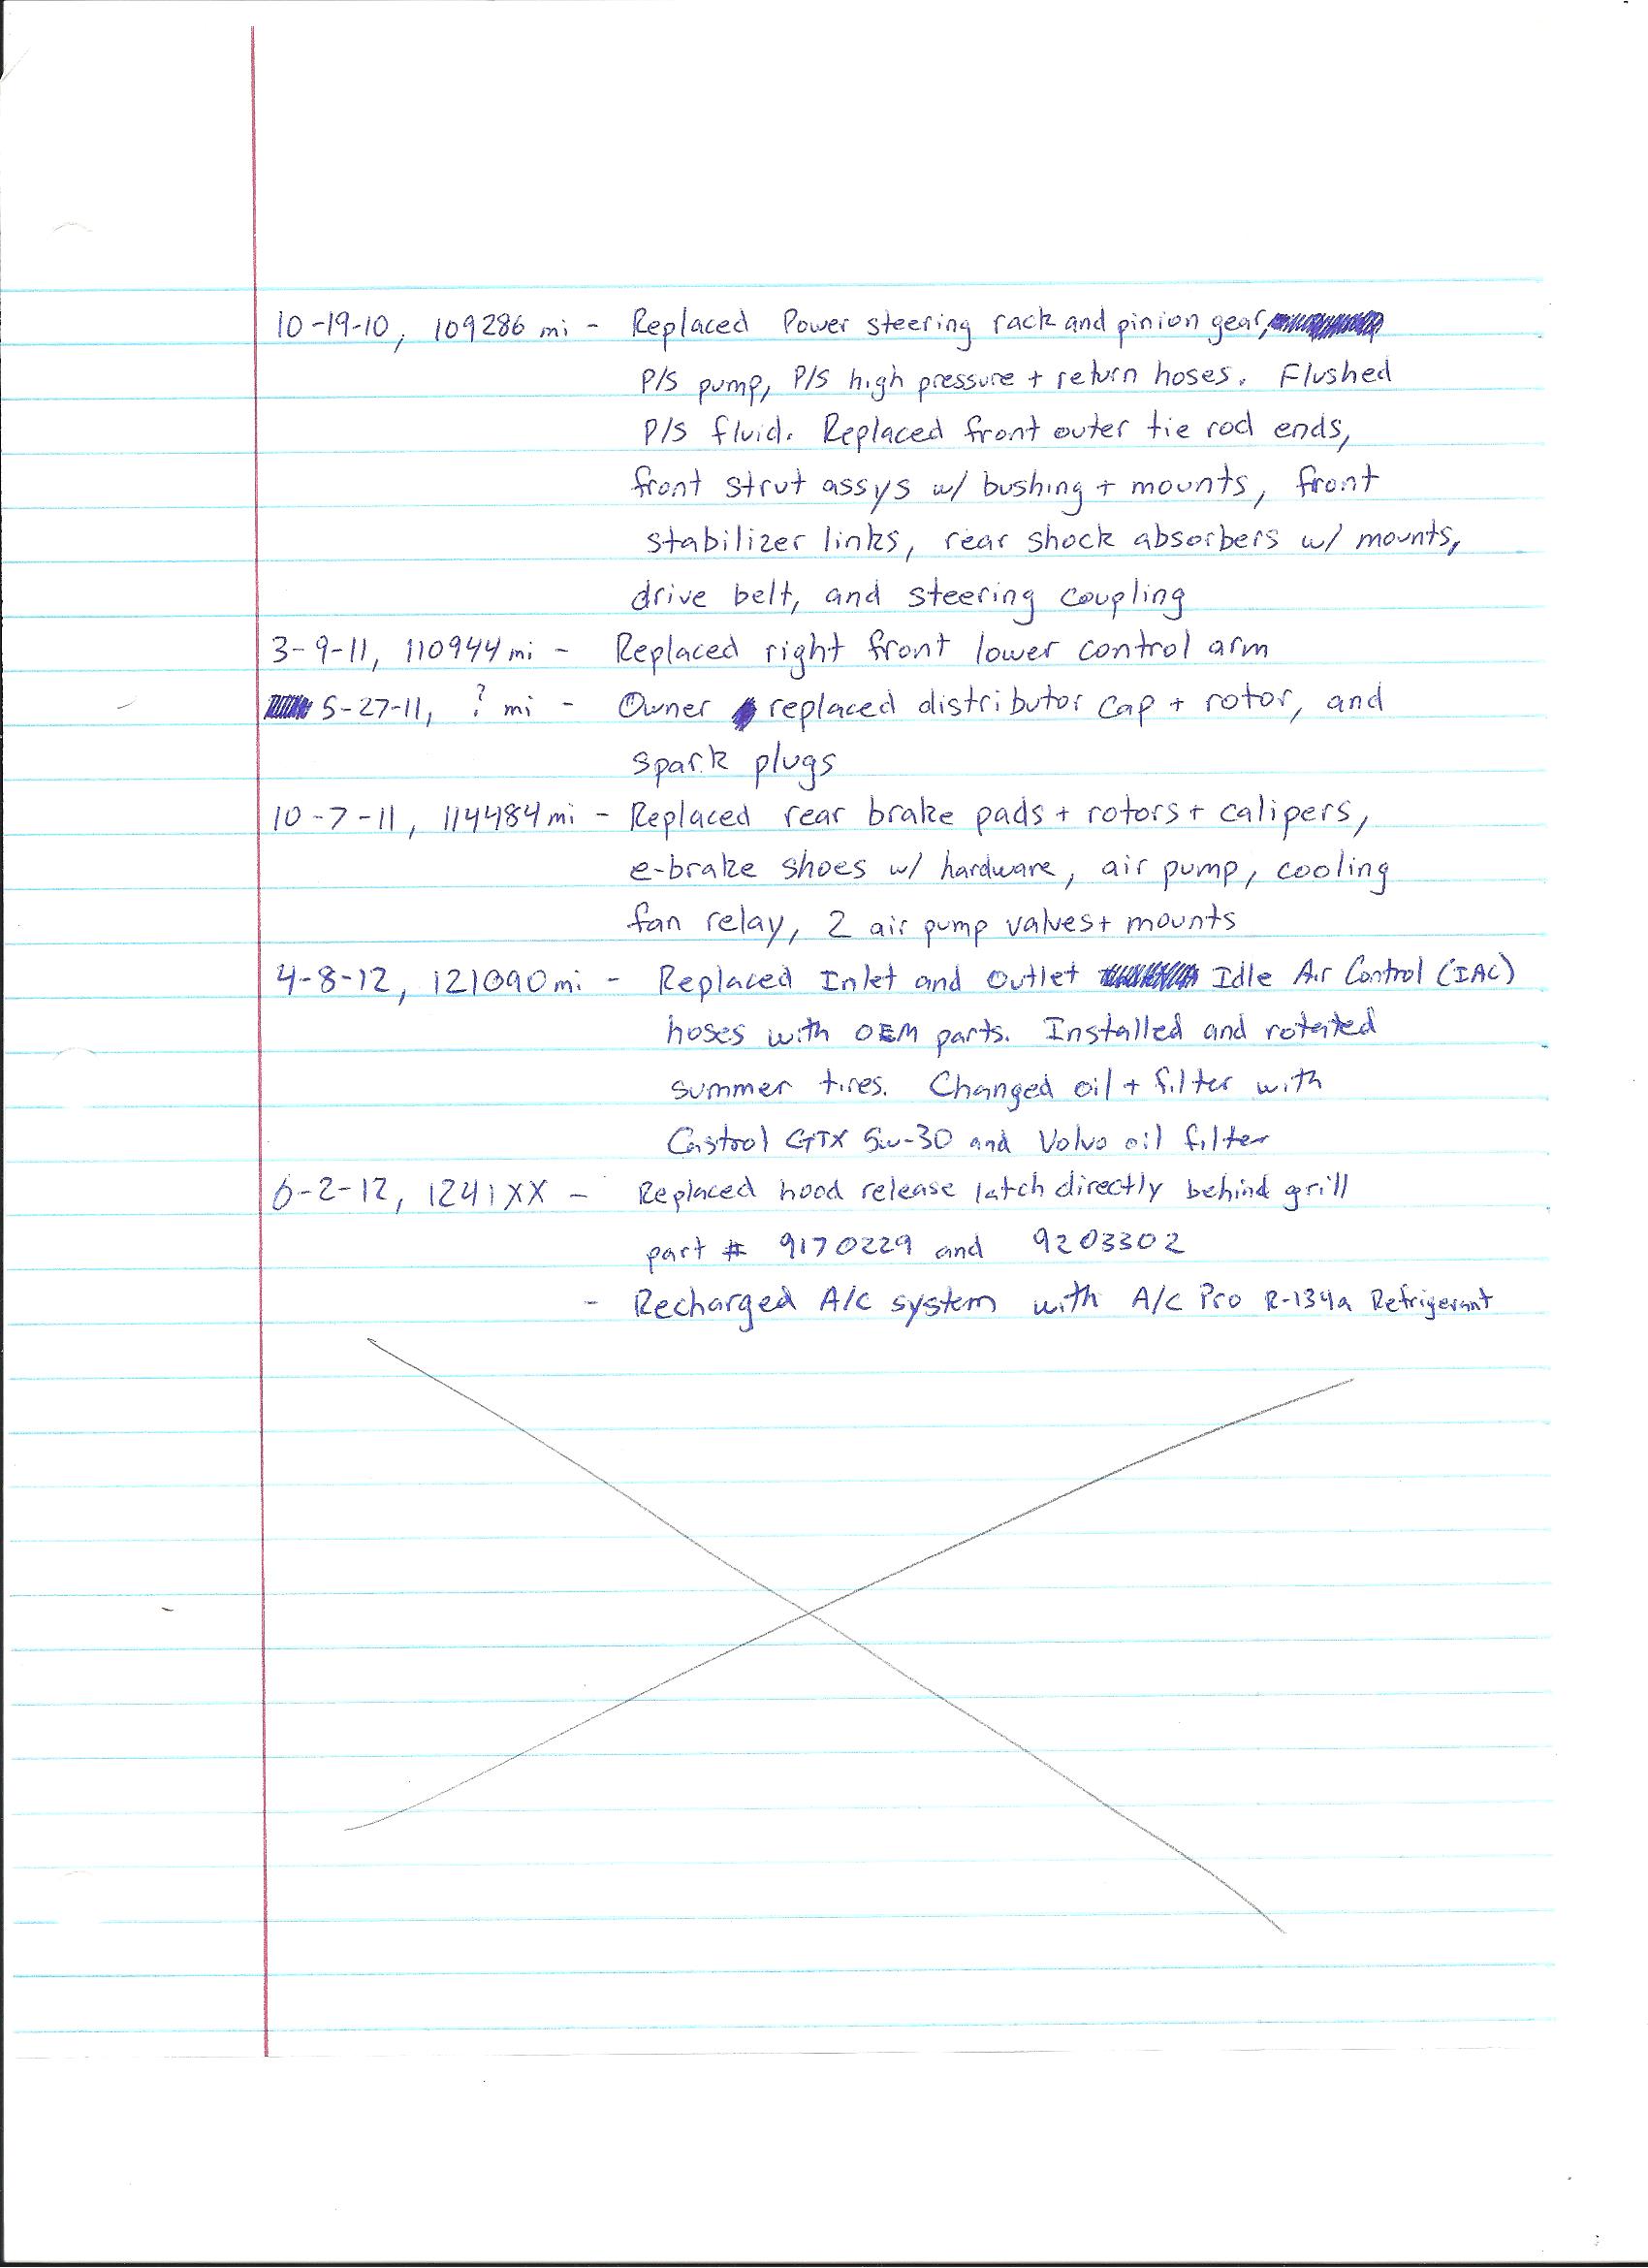 10-19-10, 109286 mi - Replaced Power steering rack and pinion gear,
P/S pump, P/S high pressure + return hoses. Flushed
P/S fluid. Replaced front outer tie rod ends,
front strut assys w/ bushing + mounts, front
stabilizer links, rear shock absorbers w/ mounts,
drive belt, and steering coupling
3-9-11, 110944 mi - Replaced right front lower control arm
5-27-11, ? mi - Owner replaced distributor cap + rotor, and
spark plugs
10-7-11, 114484 mi - Replaced rear brake pads + rotors + calipers,
e-brake shoes w/ hardware, air pump, cooling
fan relay, 2 air pump valves + mounts
4-8-12, 121090 mi - Replaced Inlet and Outlet Idle Air Control (IAC)
hoses with OEM parts. Installed and rotated
summer tires. Changed oil + filter with
Castrol GTX 5w-30 and Volvo oil filter
6-2-12, 1241XX - Replaced hood release latch directly behind grill
part # 9170229 and 9203302
- Recharged A/C system with A/C Pro R-134a Refrigerant